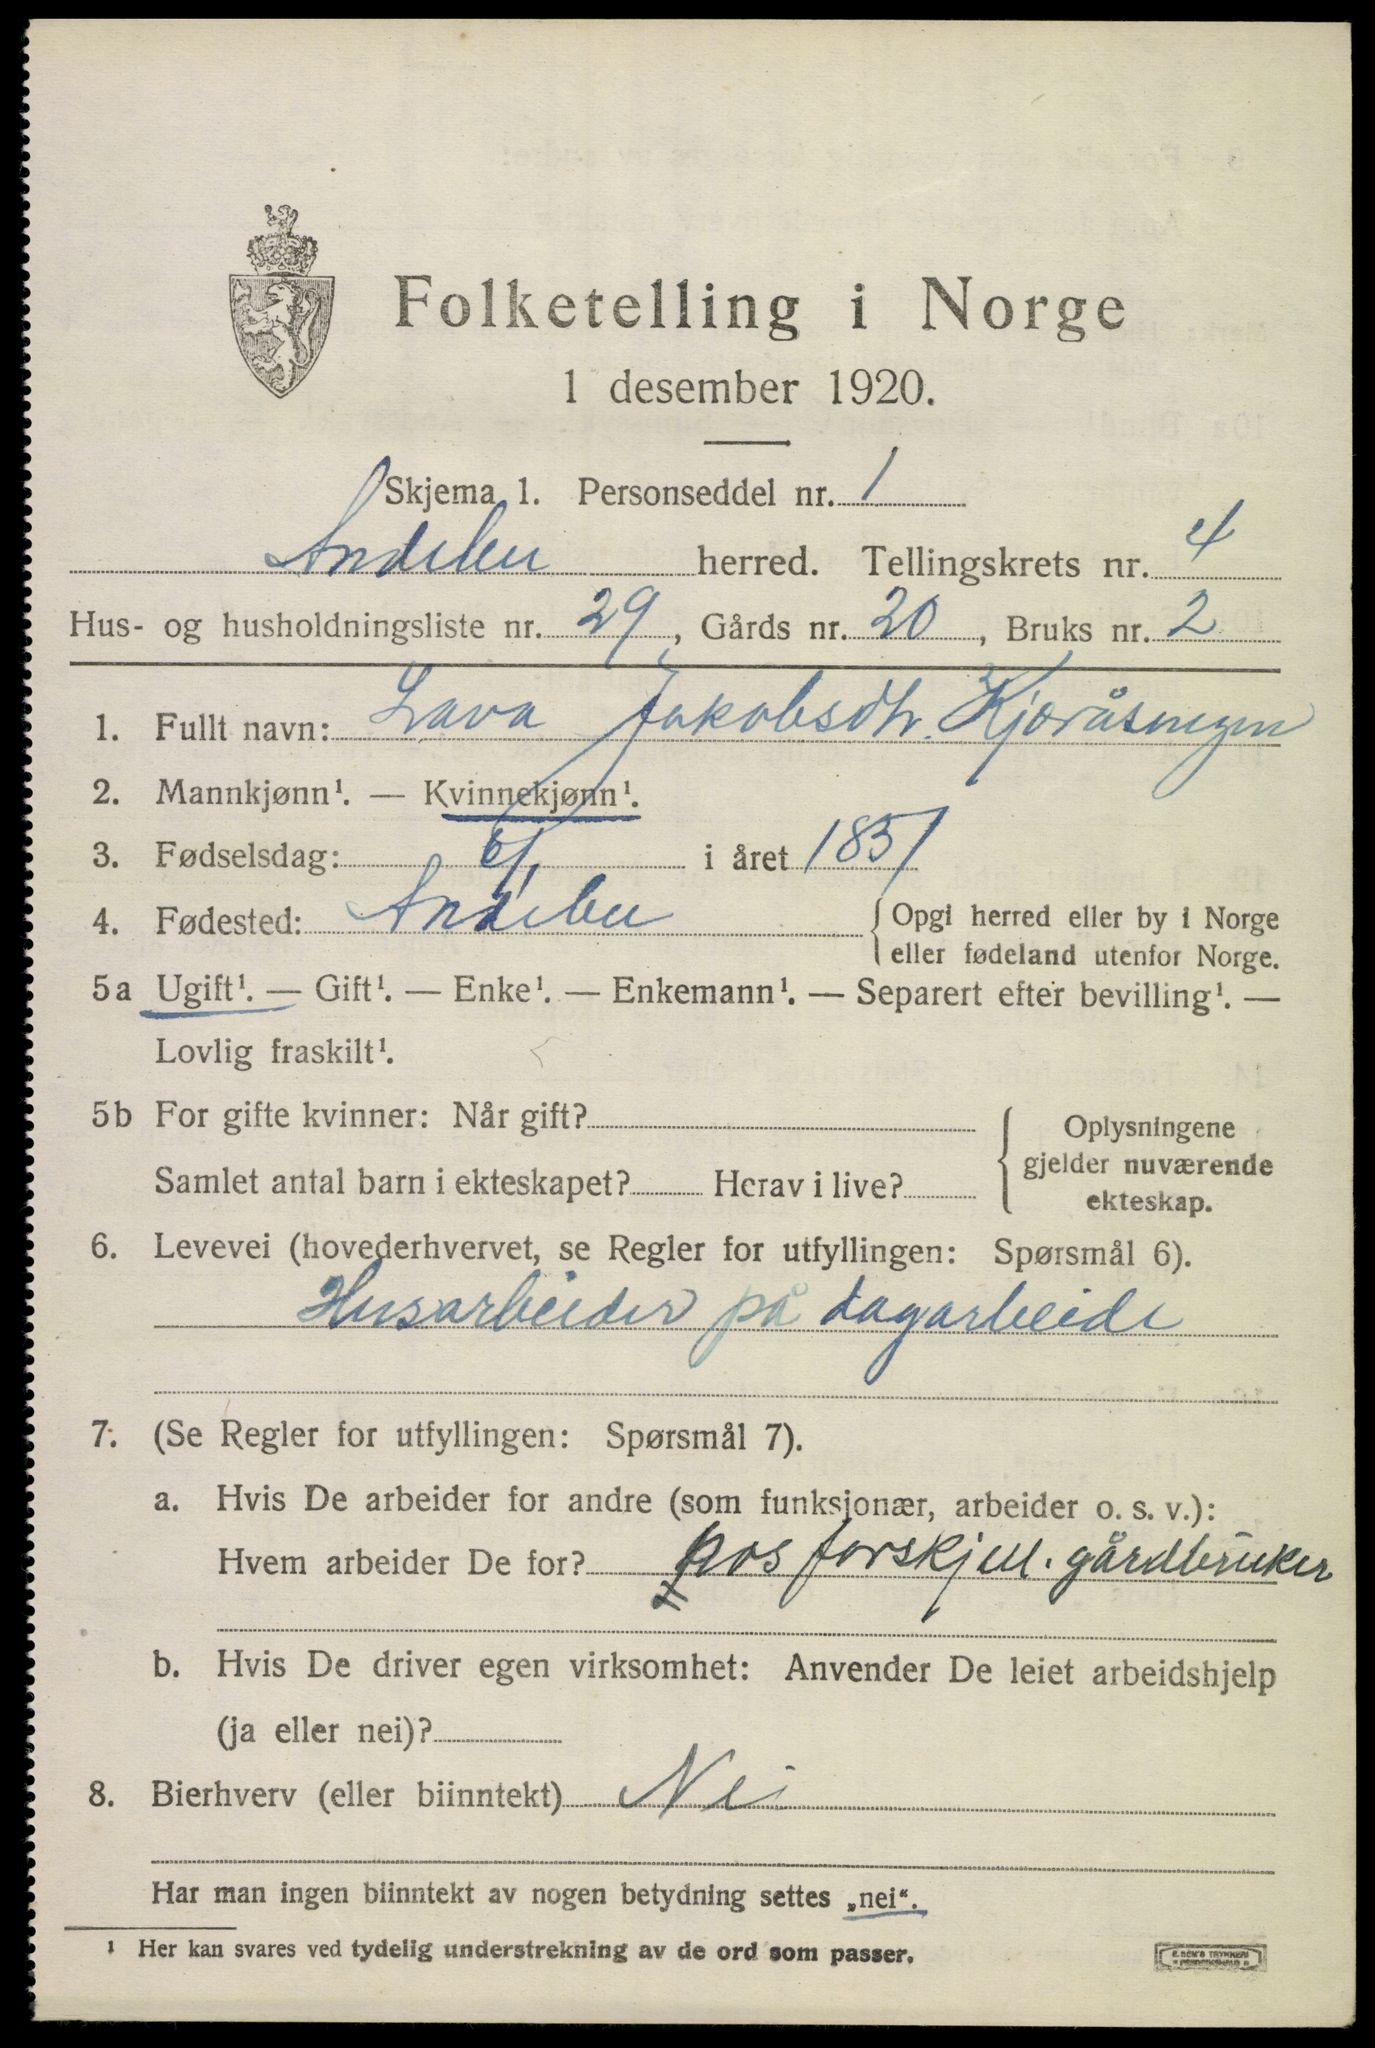 Folketelling i Norge
1 desember 1920.
Skjema 1. Personseddel nr. 1
Andebu herred. Tellingskrets nr. 4
Hus- og husholdningsliste nr. 29, Gårds nr. 20, Bruks nr. 2
1. Fullt navn: Lava Jakobsdtr. Kjæråsengen
2. Mannkjønn¹. — Kvinnekjønn¹.
3. Fødselsdag: 6/1 i året 1851
4. Fødested: Andebu {Opgi herred eller by i Norge
eller fødeland utenfor Norge.
5a Ugift¹. — Gift¹. — Enke¹. — Enkemann¹. — Separert efter bevilling¹. —
Lovlig fraskilt¹.
5b For gifte kvinner: Når gift?
Samlet antal barn i ekteskapet? Herav i live?
Oplysningene
gjelder nuværende
ekteskap.
6. Levevei (hovederhvervet, se Regler for utfyllingen: Spørsmål 6).
Husarbeider på dagarbeide
7. (Se Regler for utfyllingen: Spørsmål 7).
a. Hvis De arbeider for andre (som funksjonær, arbeider o. s. v.):
Hvem arbeider De for? hos forskjell. gårdbruker
b. Hvis De driver egen virksomhet: Anvender De leiet arbeidshjelp
(ja eller nei)?
8. Bierhverv (eller biinntekt) Nei
Har man ingen biinntekt av nogen betydning settes „nei“.
¹ Her kan svares ved tydelig understrekning av de ord som passer.